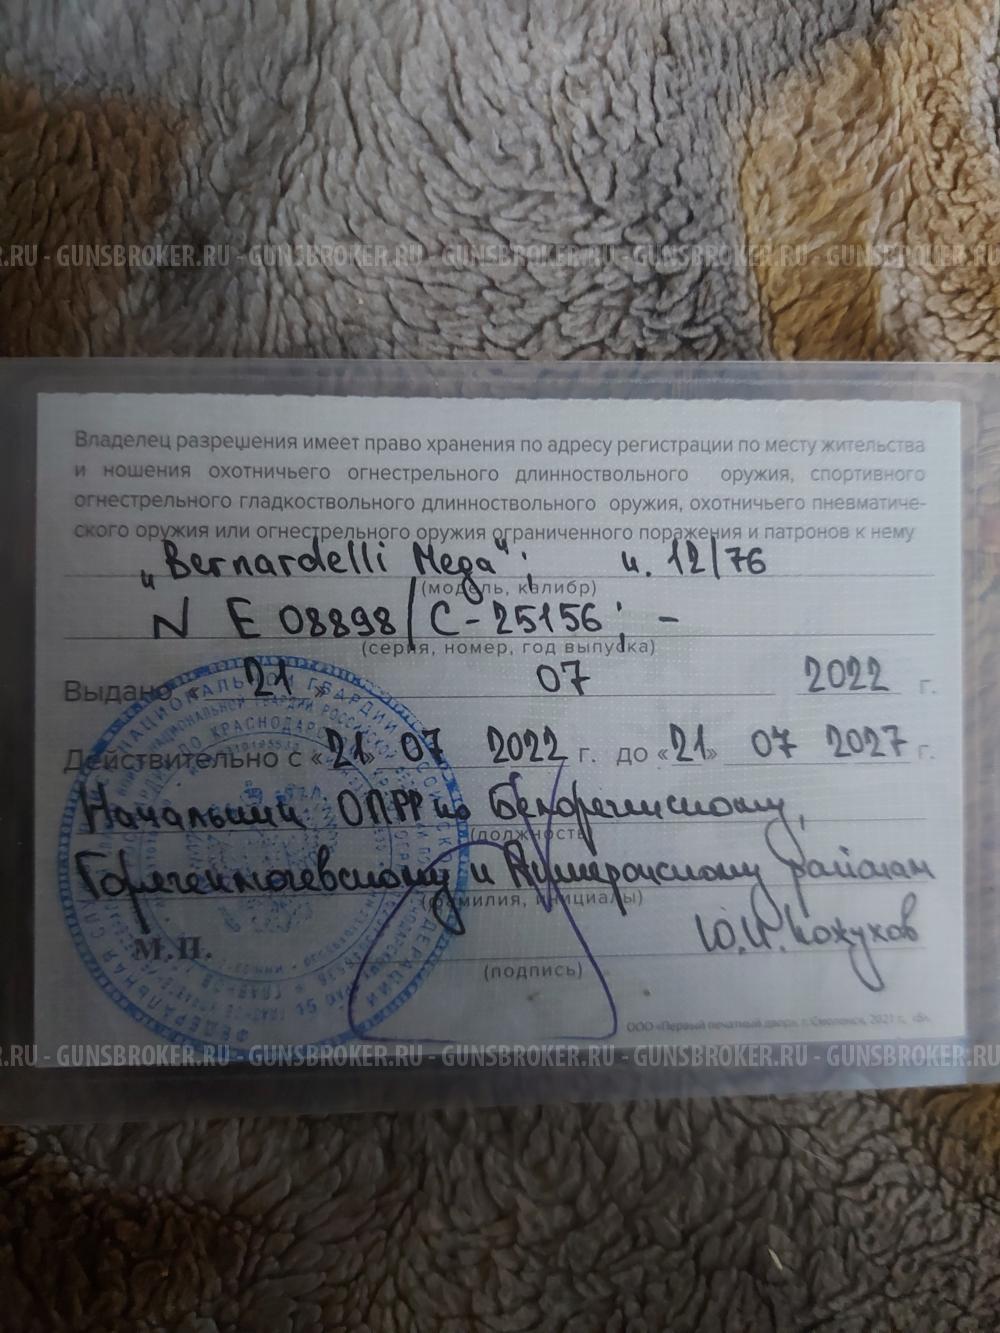 .RU - GUNSBROKER.RU - GUNSBROKER.RU - GUNSBROKER.RU - GUNSBROKER.RU - GUNSBROKER.RU
Владелец разрешения имеет право хранения по адресу регистрации по месту жительства
и ношения охотничьего огнестрельного длинноствольного оружия, спортивного
огнестрельного гладкоствольного длинноствольного оружия, охотничьего пневматиче-
ского оружия или огнестрельного оружия ограниченного поражения и патронов к нему
„Bernardelli Mega"; к. 12/76
(модель, калибр)
N E 08898/C-25156; -
(серия, номер, год выпуска)
Выдано « 21 » 07 2022 г.
Действительно с «21» 07 2022 г. до «21» 07 2027 г.
Начальник ОПРР по Белореченскому,
(должность)
Горячеключевскому и Апшеронскому районам
(фамилия, инициалы)
Ю.И. Кожухов
М.П.
(подпись)
ООО «Первый печатный двор», г. Смоленск, 2021 г., «В».
.RU - GUNSBROKER.RU - GUNSBROKER.RU - GUNSBROKER.RU - GUNSBROKER.RU - GUNSBROKER.RU